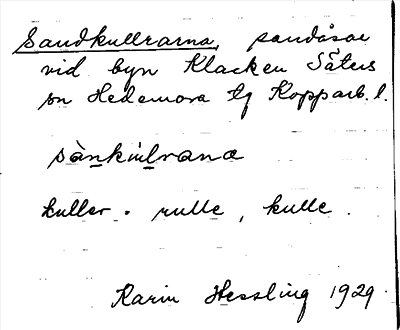 Sandkullrarna, sandåsar
vid byn Klacken Säters
sn Hedemora tg Kopparb. l.
sànkulrana
kuller = rulle, kulle.
Karin Hessling 1929.